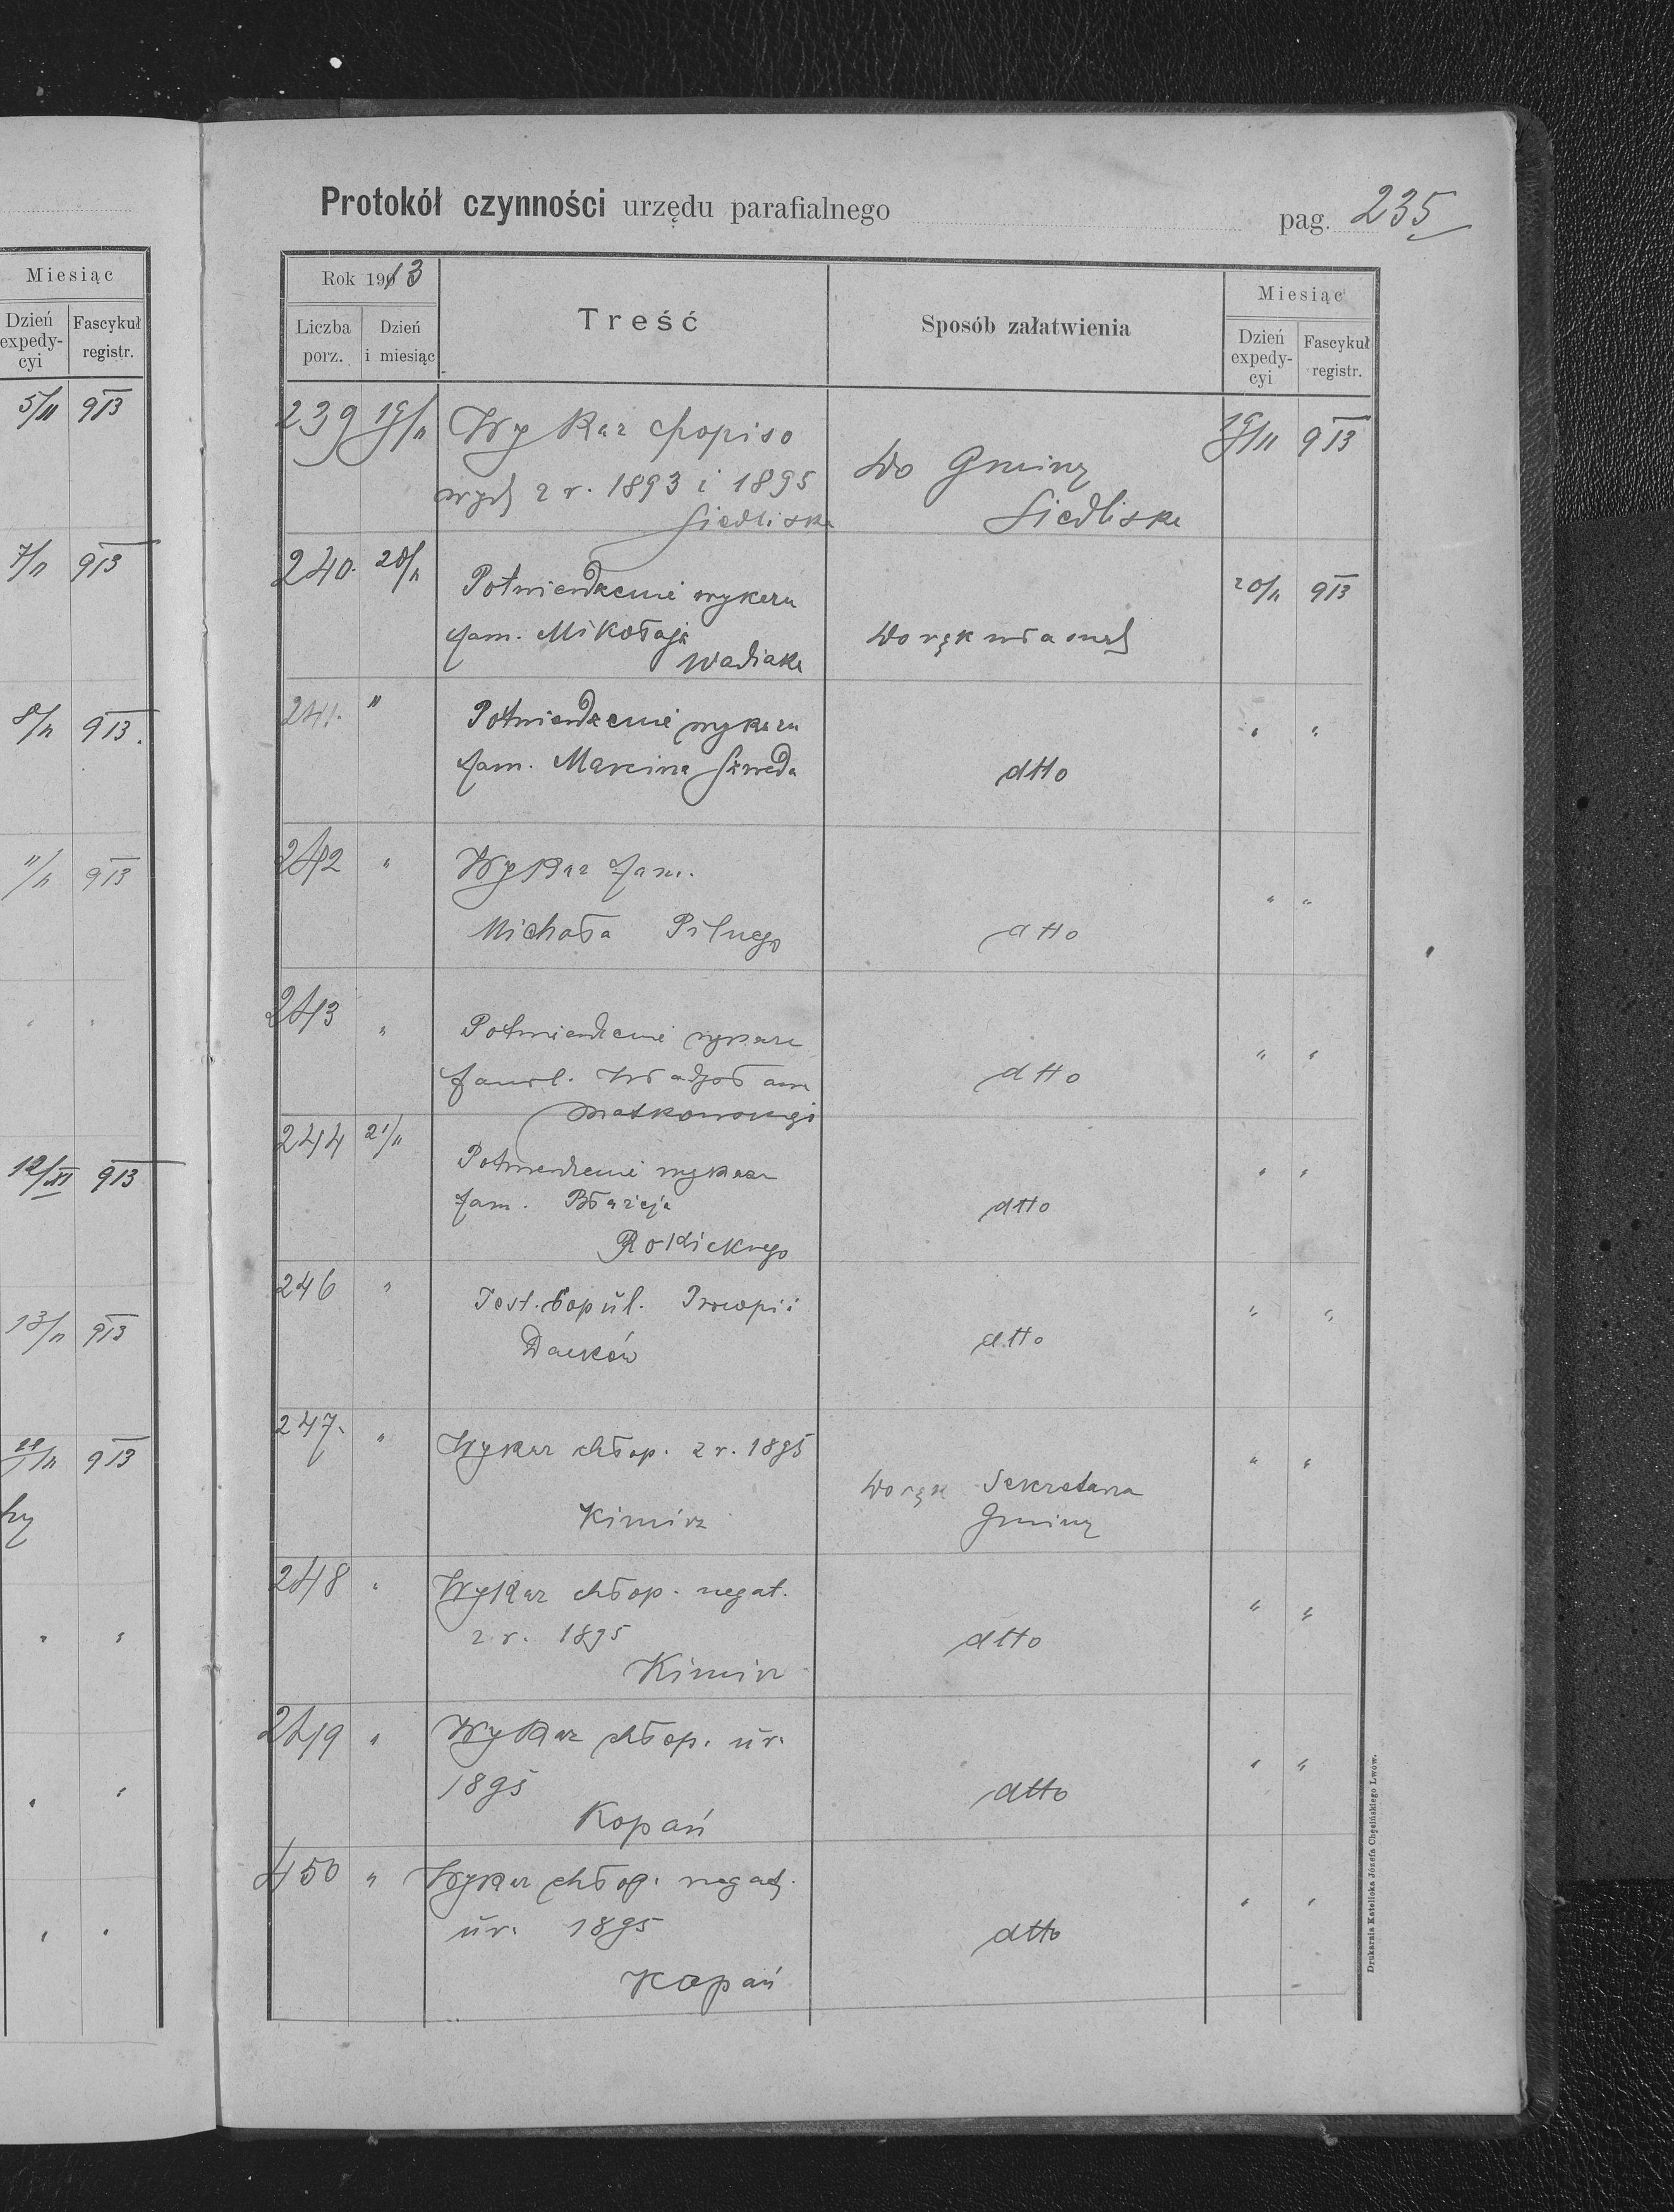 Miesiąc
Dzień expedycyi
Fascykuł registr.
5/11 913
7/11 913
8/11 913.
11/11 913
" "
12/XI 913
13/11 913
/11 913
" "
" "
" "
Protokół czynności urzędu parafialnego pag. 235
Rok 1913
Liczba porz.
Dzień i miesiąc
Treść
Sposób załatwienia
Miesiąc
Dzień expedycyi
Fascykuł registr.
239 19/11 Wykaz popiso
wych z r. 1893 i 1895
Siedliska
Do Gminy
Siedliska
19/11 913
240. 20/11 Potwierdzenie wykazu
fam. Mikołaja
Wadiaka
Do rąk własnych
20/11 913
241. " Potwierdzenie wykazu
fam. Marcina Szweda
dtto
" "
242 " Wykaz fam.
Michała Pilnego
dtto
" "
243 " Potwierdzenie wykazu
famil. Władysława
Matkowskiego
dtto
" "
244 21/11 Potwierdzenie wykazu
fam. Błażeja
Rokickiego
dtto
" "
246 " Test. Copul. Prokopii
Dacków
dtto
" "
247. " Wykaz chłop. z r. 1895
Kimirz
Do rąk Sekretarza
Gminy
" "
248 " Wykaz chłop. negat.
z r. 1895
Kimirz
dtto
" "
249 " Wykaz chłop. ur.
1895
Kopań
dtto
" "
450 " Wykaz chłop. negat.
ur. 1895
Kopań
dtto
" "
Drukarnia Katolicka Józefa Chęcińskiego Lwów.